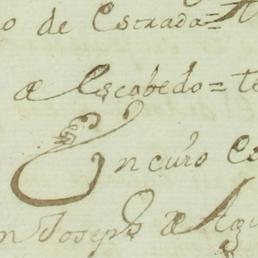 o de Estrada=
de Escabedo= te
En curo
n Joseph de Agu